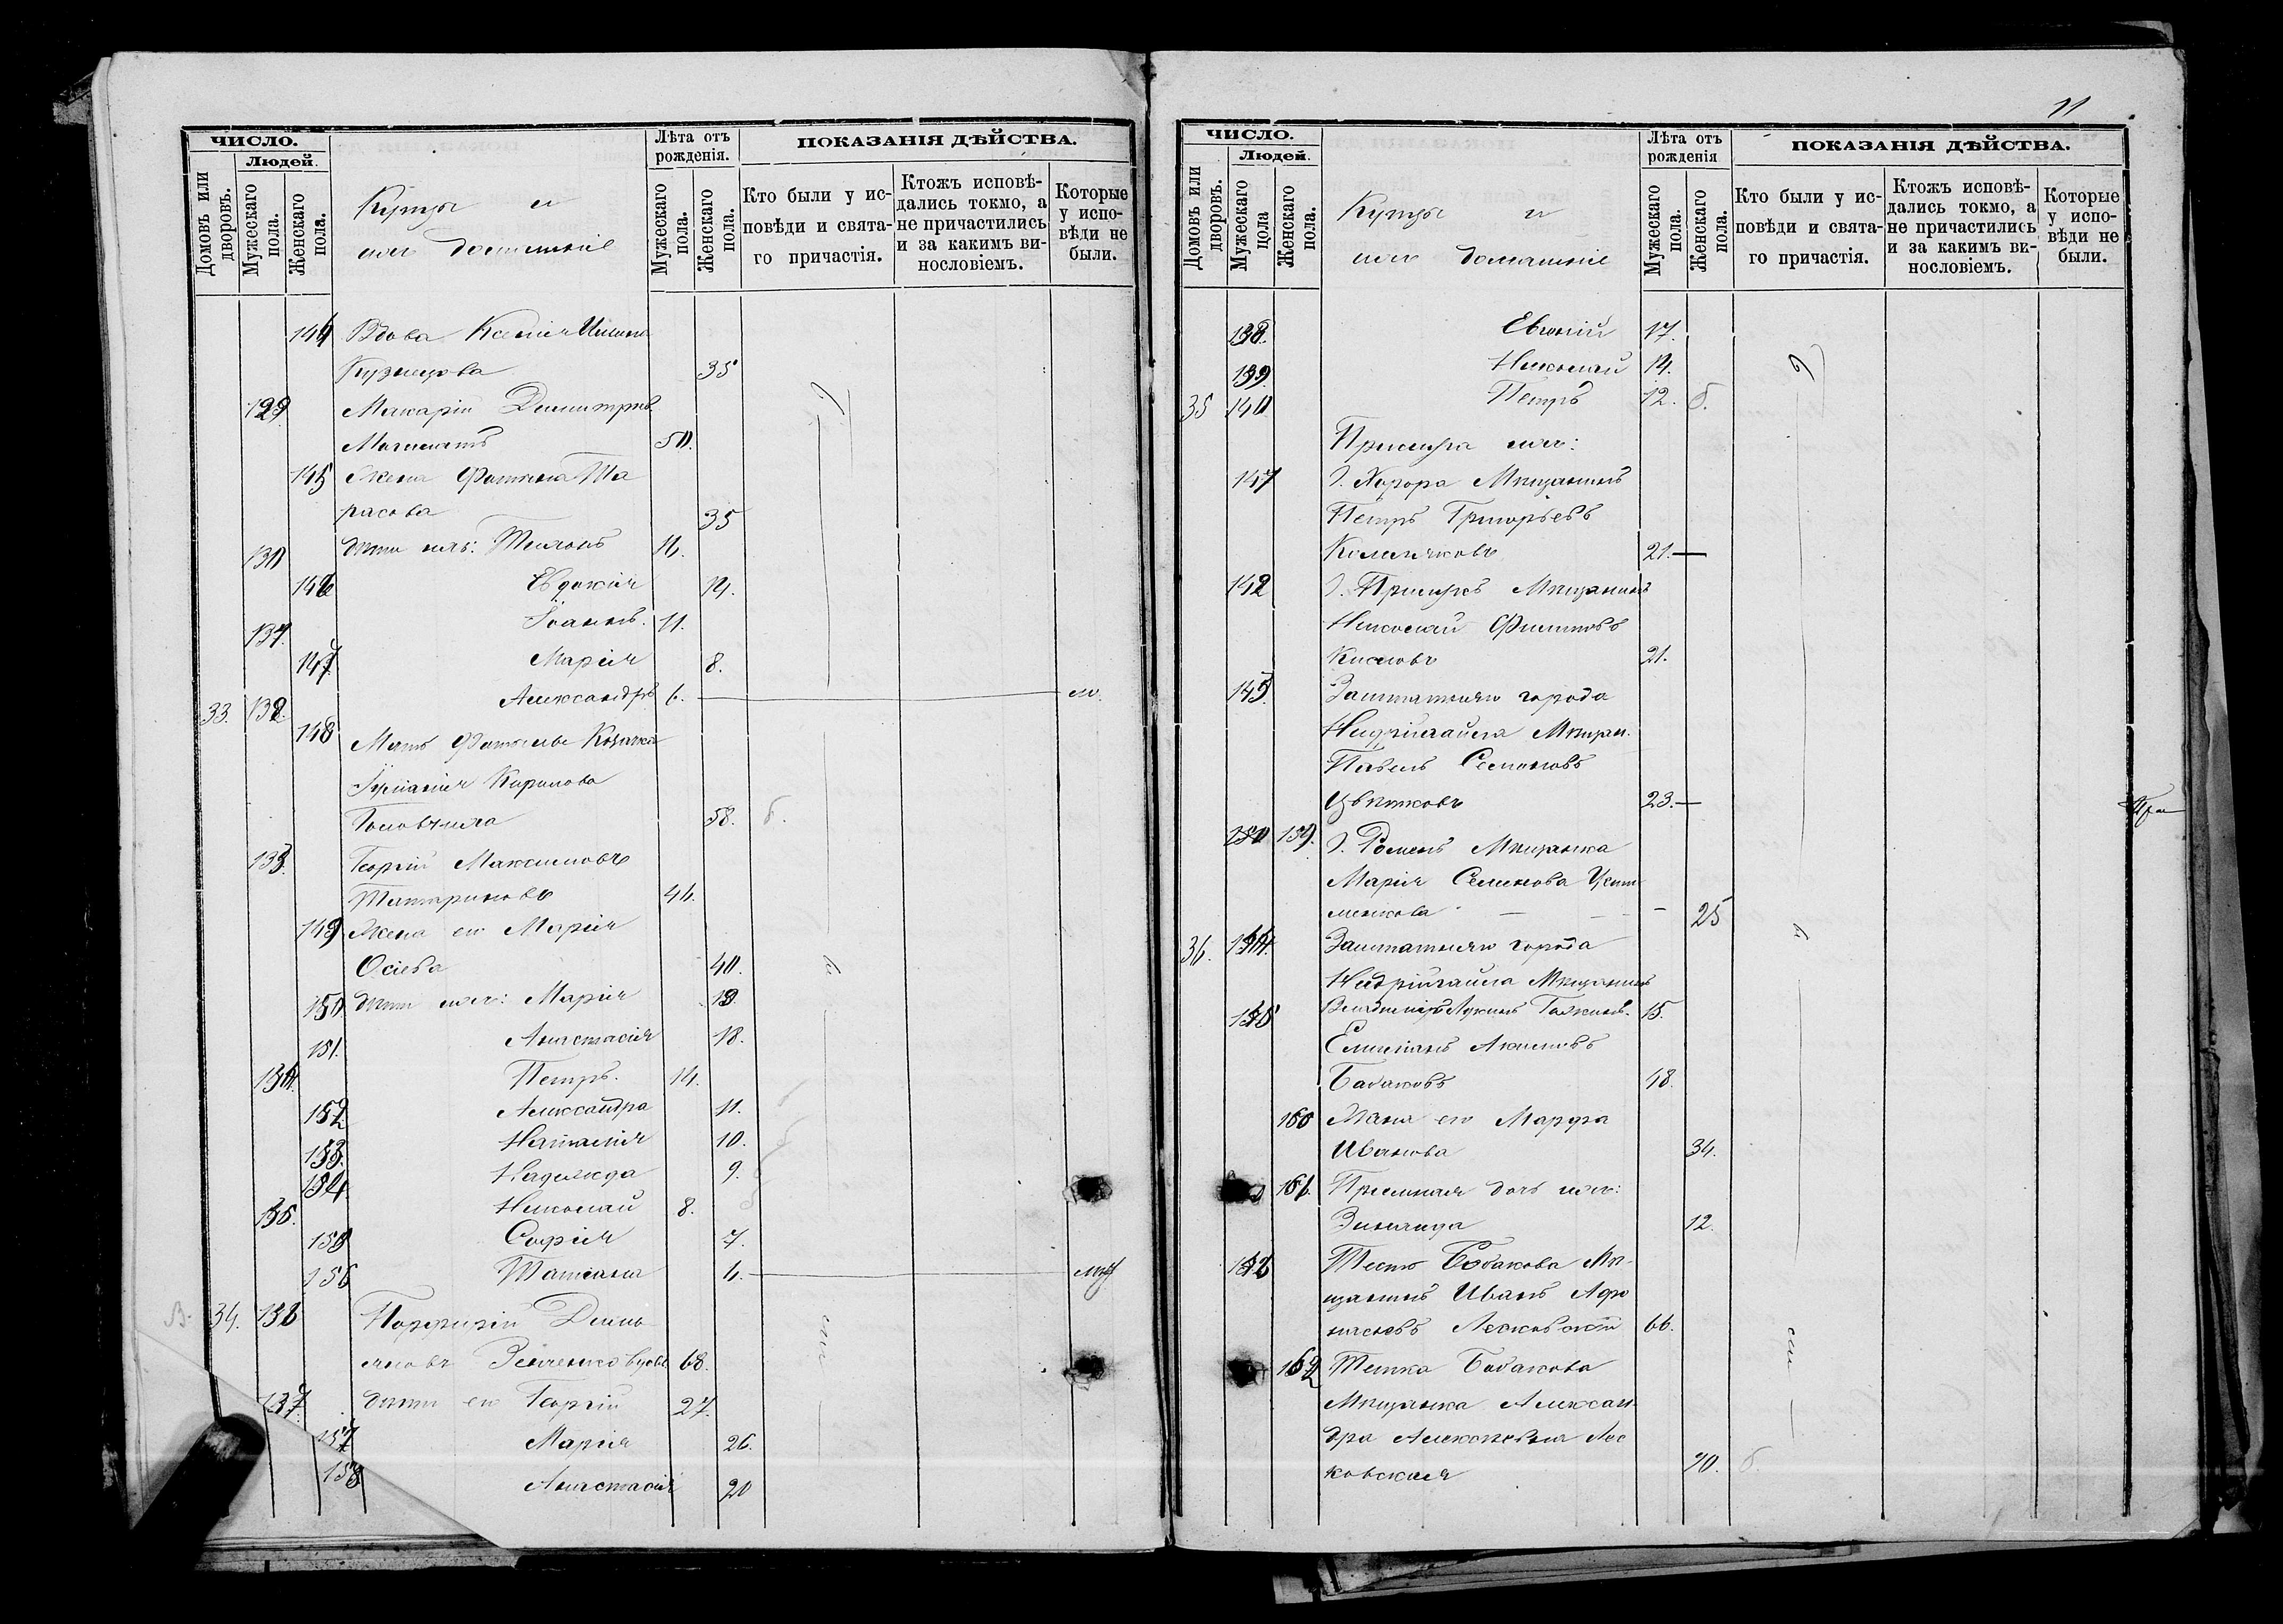 ЧИСЛО.
Людей.
Домовъ или дворовъ.
Мужескаго пола.
Женскаго пола.
Купцы и
ихъ домашніе
Лѣта отъ рожденія.
Мужескаго пола.
Женскаго пола.
ПОКАЗАНІЯ ДѢЙСТВА.
Кто были у исповѣди и святаго причастія.
Ктожъ исповѣдались токмо, а не причастились и за какимъ винословіемъ.
Которые у исповѣди не были.
144 Вдова Ксенія
Кузнецова 35
129 Макарій Димитріев
50.
145 Жена Фотина Та
расова 35
130 дѣти ихъ: Тихонъ 16.
146 Евдокія 14.
131. Іоаннъ. 11.
147 Марія 8.
33. 132. Александръ 6.
148 Мать
Кирилова
58. б.
133. Георгій Максимовъ
Татариновъ 46.
149 Жена его Марія
Осіева 40.
150 дѣти ихъ: Марія 19
151. Анастасія 18.
134. Петръ. 14.
152 Александра 11.
153. Наталія 10.
154 Надежда 9.
135. Николай 8.
155 Софія 7.
156 Татіана 6.
В. 34. 136 Порфирій Деми
яновъ Зінченко вдовъ 68.
137 дѣти его Георгій 27.
157 Марія 26.
158 Анастасія 20
11
ЧИСЛО.
Людей.
Домовъ или дворовъ.
Мужескаго пола
Женскаго пола.
Купцы и
ихъ домашніе
Лѣта отъ рожденія
Мужескаго пола.
Женскаго пола.
ПОКАЗАНІЯ ДѢЙСТВА.
Кто были у исповѣди и святаго причастія.
Ктожъ исповѣдались токмо, а не причастились и за какимъ винословіемъ.
Которые у исповѣди не были.
138. Евгеній 17.
139. Николай 14.
35 140 Петръ 12. б.
Прислуга ихъ:
141 Г. Хорола Мѣщанинъ
Петръ Григорьевъ
21.
142 Г. Мѣщанинъ
Николай Филиповъ
Кисловъ 21.
143 Заштатнаго города
Недригайлова Мѣщан.
Павелъ Семеновъ
Цвѣтковъ 23.
159. Г. Роменъ Мѣщанка
Марія Семенова Усти
менкова 25
36. 144. Заштатнаго города
Недригайлова Мѣщанинъ
145 Владиміръ 15.
Акимовъ
Бабаковъ 48.
160 Жена его Марфа
Иванова 34.
161. Пріемная дочь ихъ:
Зинаида 12.
146 Тесть Бабакова Мѣ-
щанинъ Иванъ Афо
насьевъ Лесковскій 66.
162 Тетка Бабакова
Мѣщанка Алексан
дра Алексѣевна Лес
ковская 70. б.